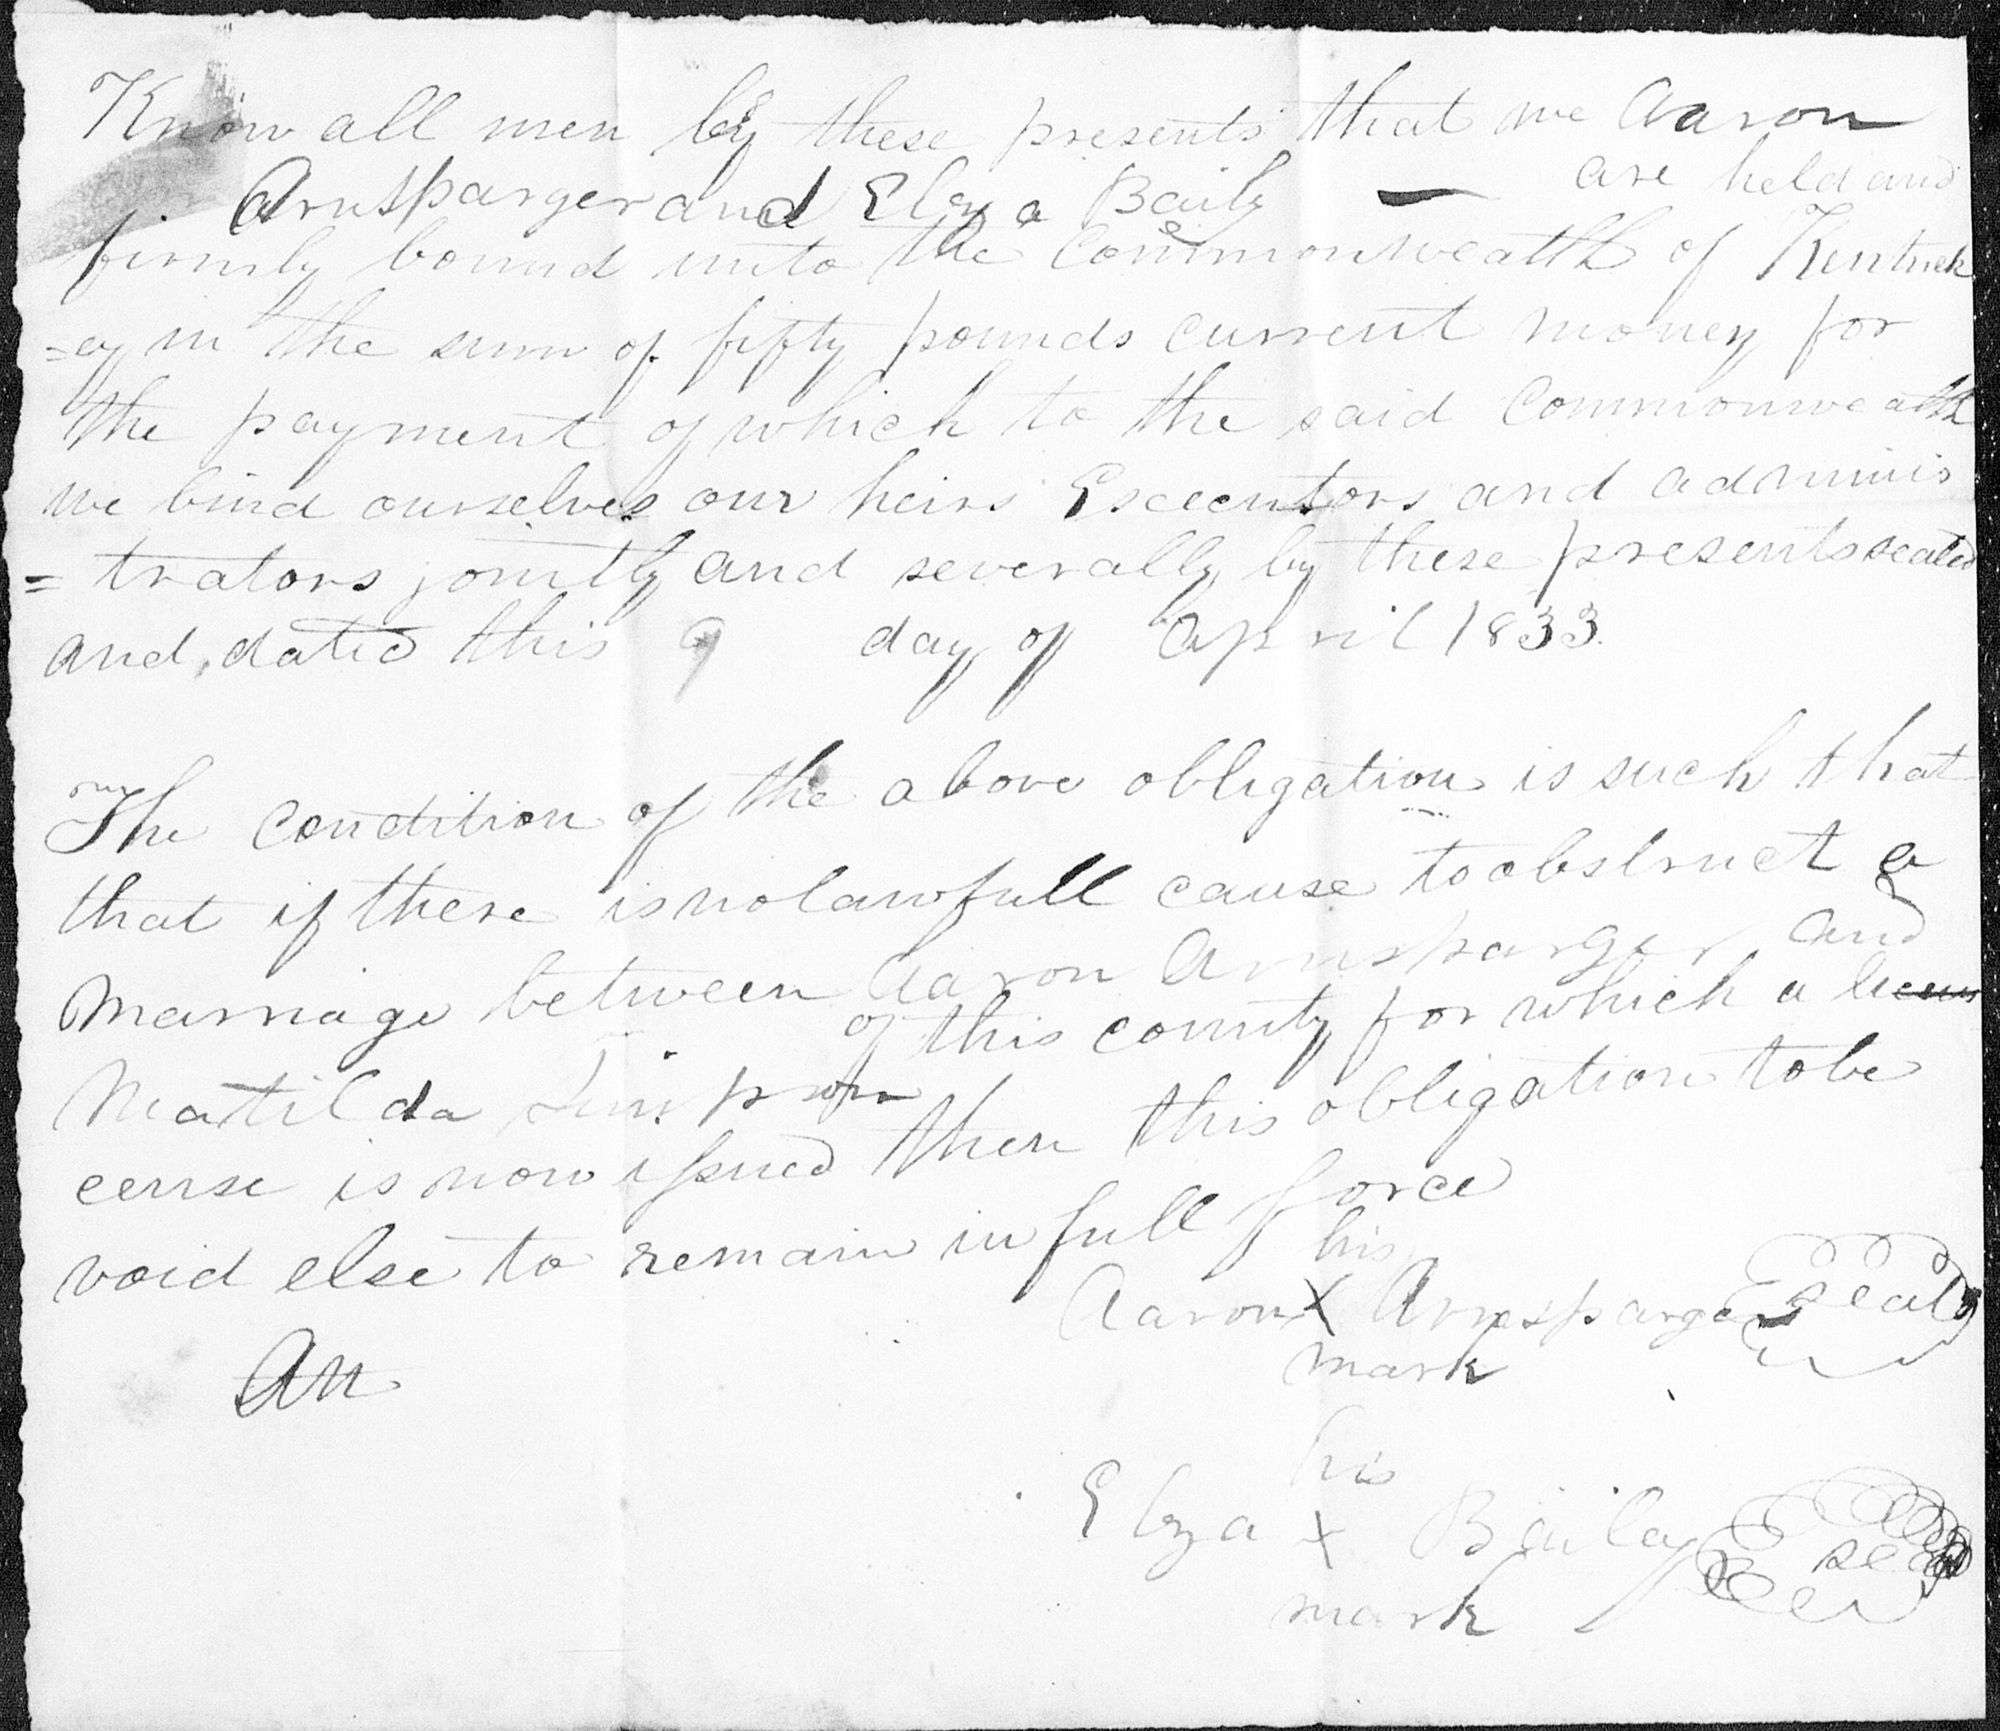 Know all men by these presents that we Aaron
Arnsparger and Elza Baily — are held and
firmly bound unto the Commonweath of Kentuck
=ey in the sum of fifty pounds current money for
the payment of which to the said Commonweath
we bind ourselves our heirs Executors and adminis
=trators jointly and severally by these presents sealed
and dated this 9 day of April 1833.
The condition of the above obligation is such that
that if there is no lawfull cause to obstruct a
Marriage between Aaron Arnsparger and
Matilda Simpson of this county for which a li
cense is now issued then this obligation to be
void else to remain in full force
his
Aaron X Arnsparger seal
mark
Att
his
Elza X Bailey seal
mark